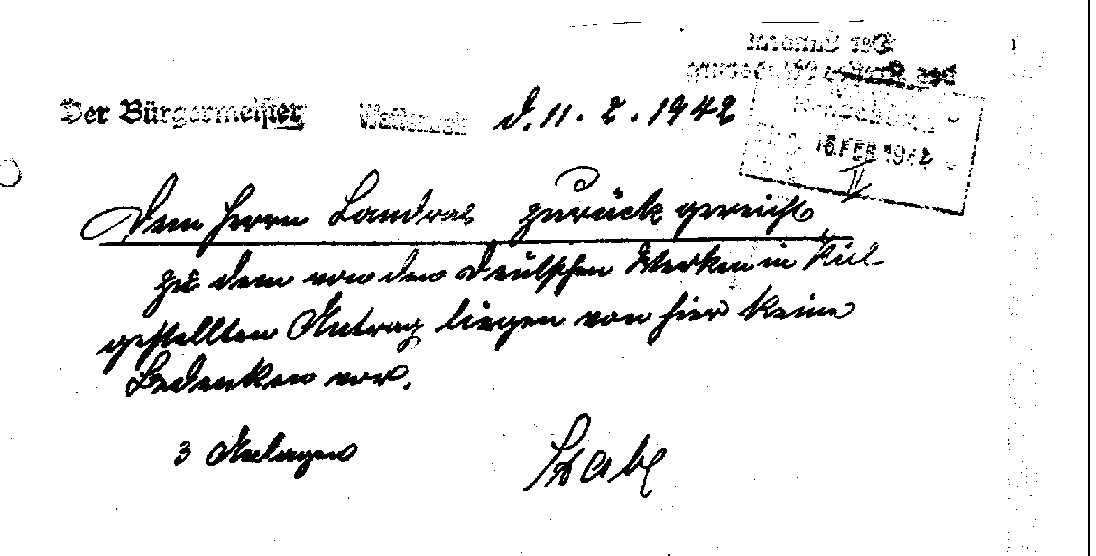 Der Bürgermeister Wattenbek d. 11. 2. 1942
16. FEB. 1942
II
Dem Herrn Landrat zurück gereicht
zu dem von den Deutschen Werken in Kiel
gestellten Antrag liegen von hier keine
Bedenken vor.
3 Anlagen